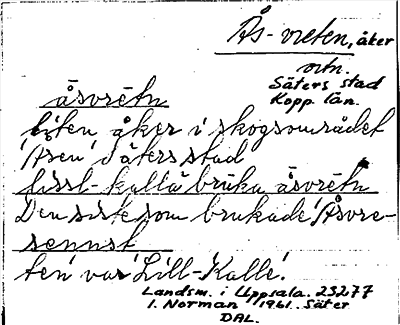 Ås-vreten, åker
ortn.
Säters stad
Kopp. län.
åsvrētn
liten åker i skogsområdet
'Åsen' Säters stad
lissl-kalla bruka åsvrētn
Den siste som brukade 'Åsvre-
sennst
ten' var 'Lill-Kalle'.
Landsm. i Uppsala. 23277
I. Norman 1961. Säter
DAL.